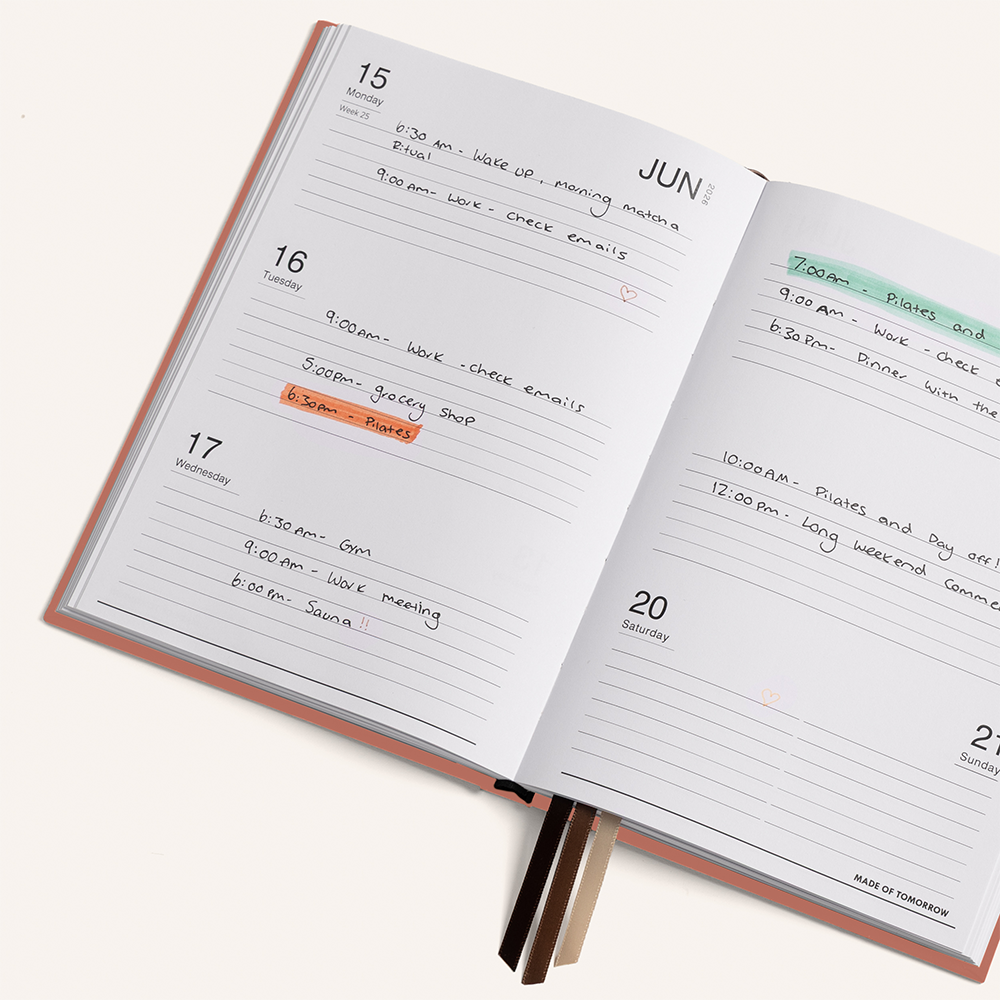 15
Monday
Week 25
JUN
2026
6:30 AM - Wake up, morning matcha
Ritual
9:00 am - Work - check emails
16
Tuesday
9:00 am - Work - check emails
5:00pm - grocery shop
6:30pm - Pilates
17
Wednesday
6:30 am - Gym
9:00 am - Work meeting
6:00 pm - Sauna !!
7:00 am - Pilates and
9:00 am - Work - check
6:30 pm - Dinner with the
10:00 AM - Pilates and Day off!
12:00 pm - Long weekend
20
Saturday
21
Sunday
MADE OF TOMORROW